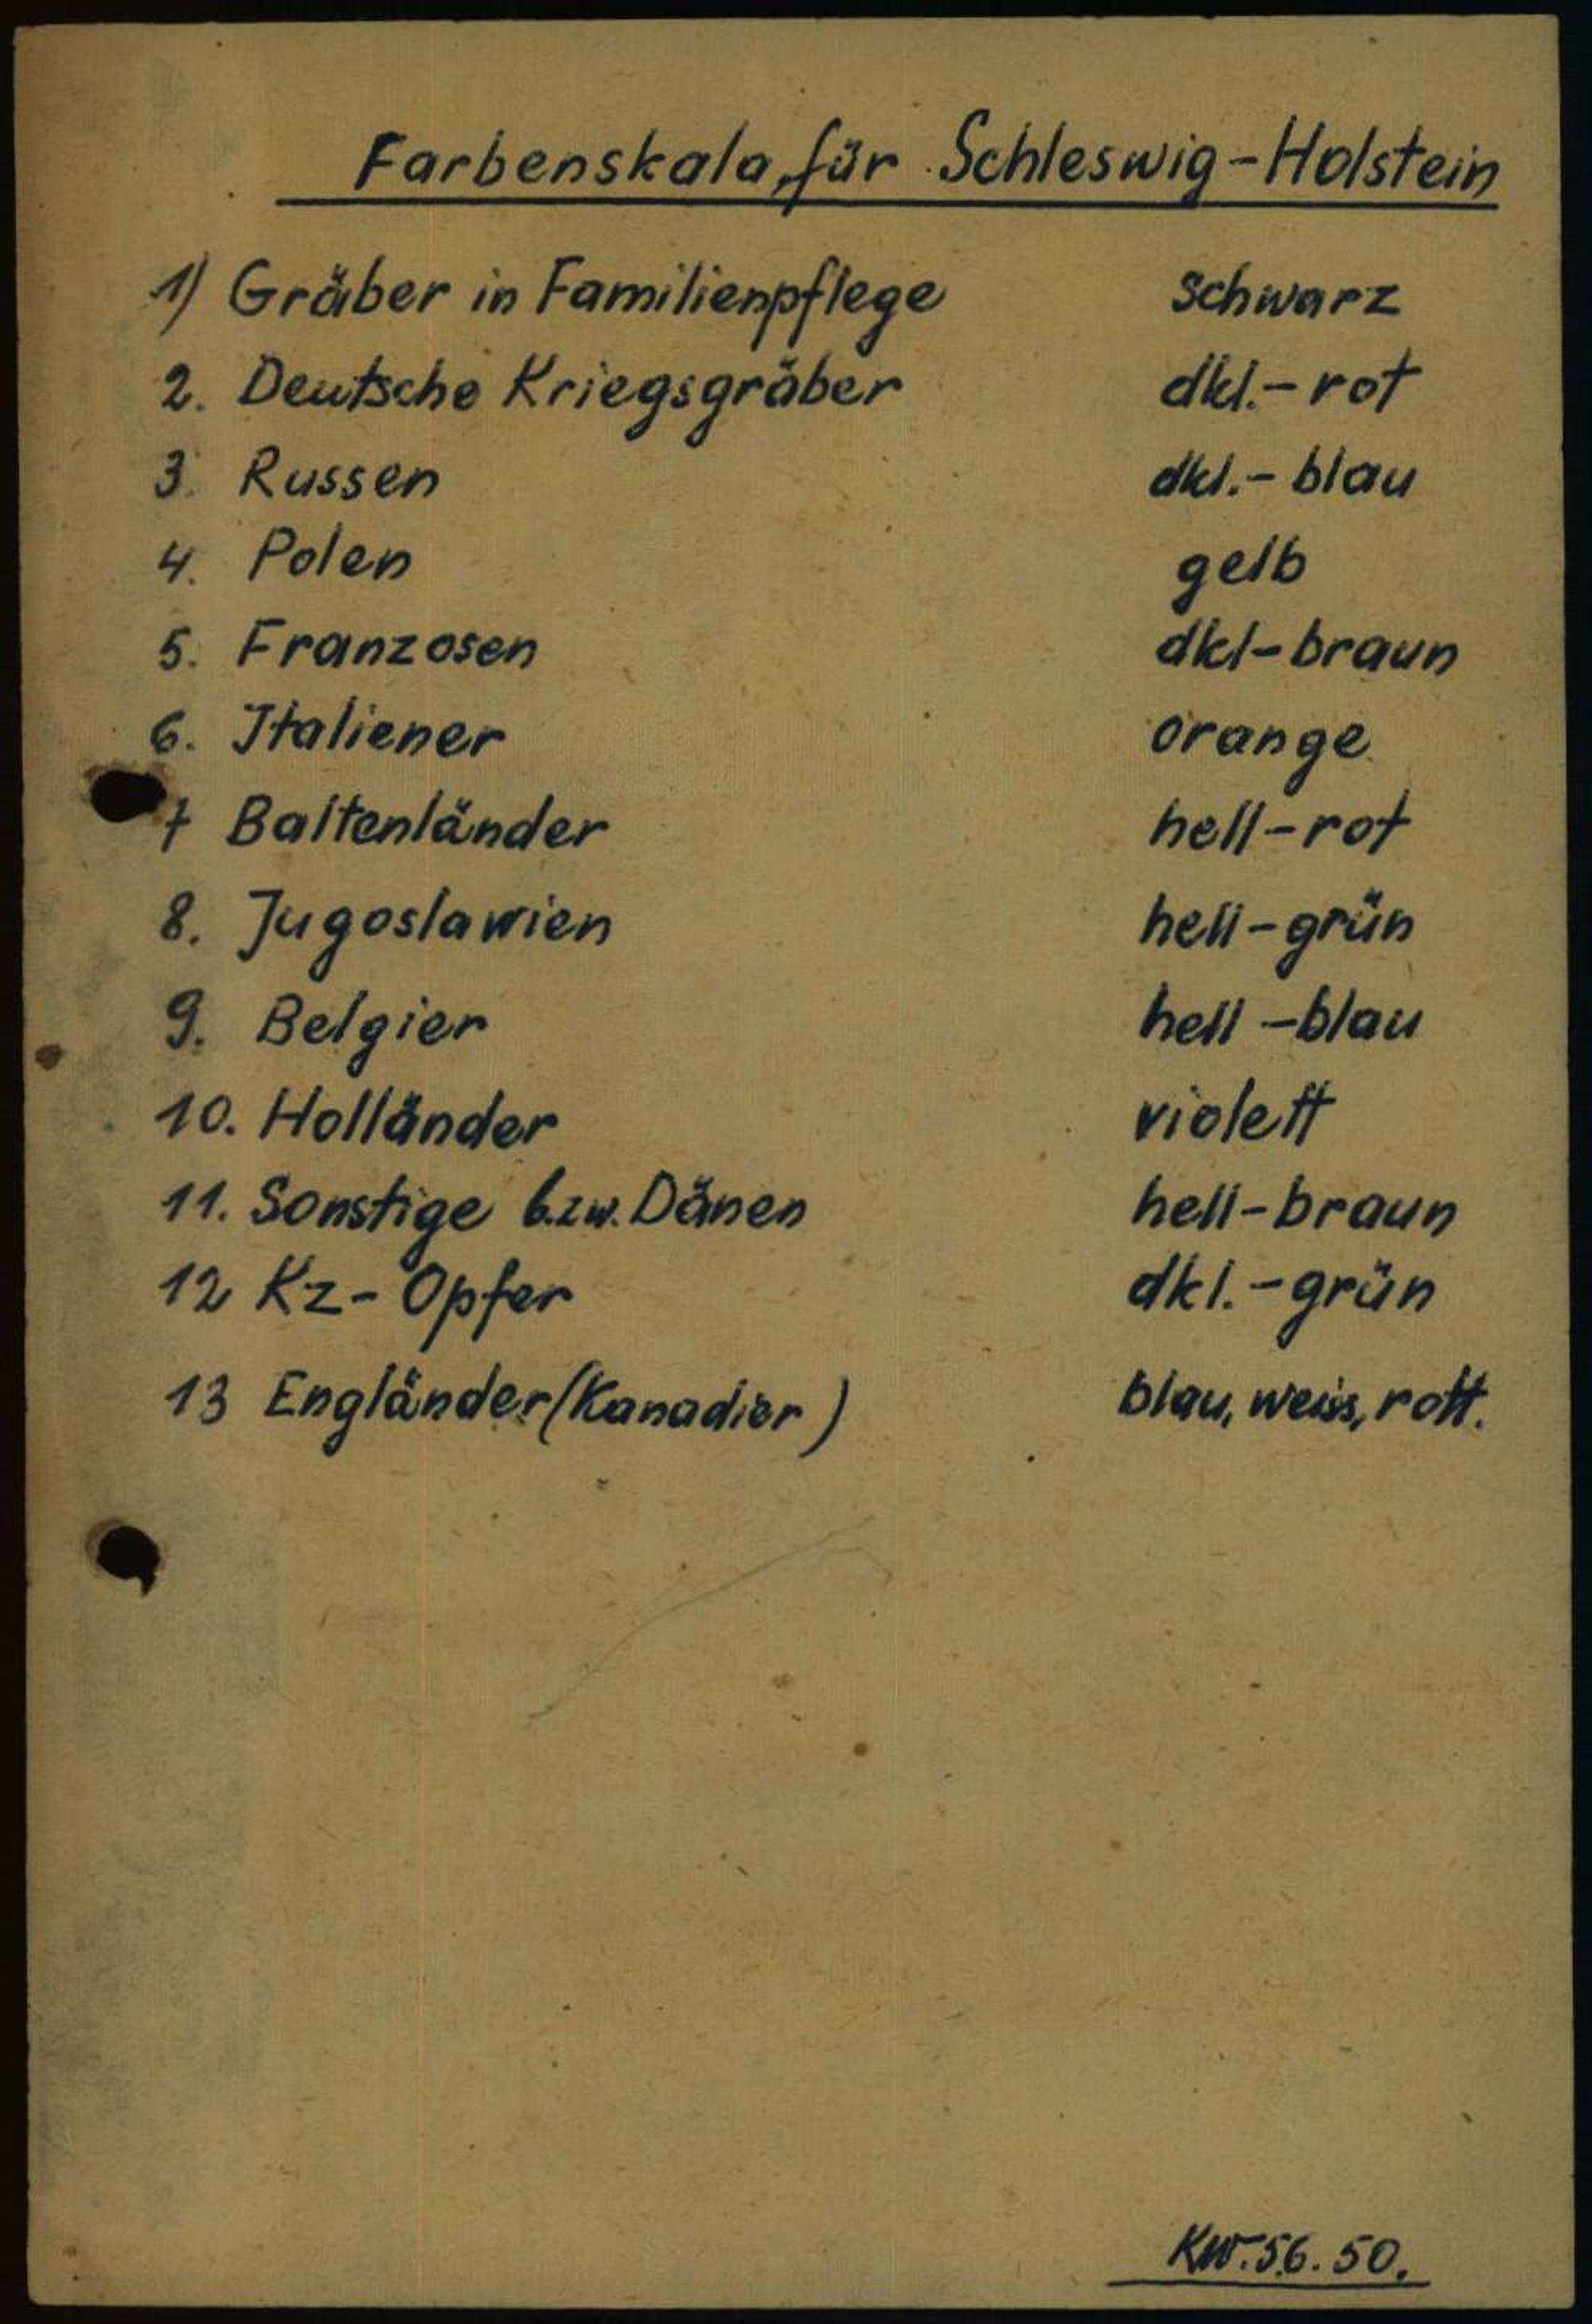 Farbenskala für Schleswig-Holstein
1) Gräber in Familienpflege schwarz
2. Deutsche Kriegsgräber dkl.-rot
3. Russen dkl.-blau
4. Polen gelb
5. Franzosen dkl-braun
6. Italiener orange
7 Baltenländer hell-rot
8. Jugoslawien hell-grün
9. Belgier hell-blau
10. Holländer violett
11. Sonstige b.zw. Dänen hell-braun
12 Kz-Opfer dkl.-grün
13 Engländer (Kanadier) blau, weiss, rott.
KW. 5.6.50.